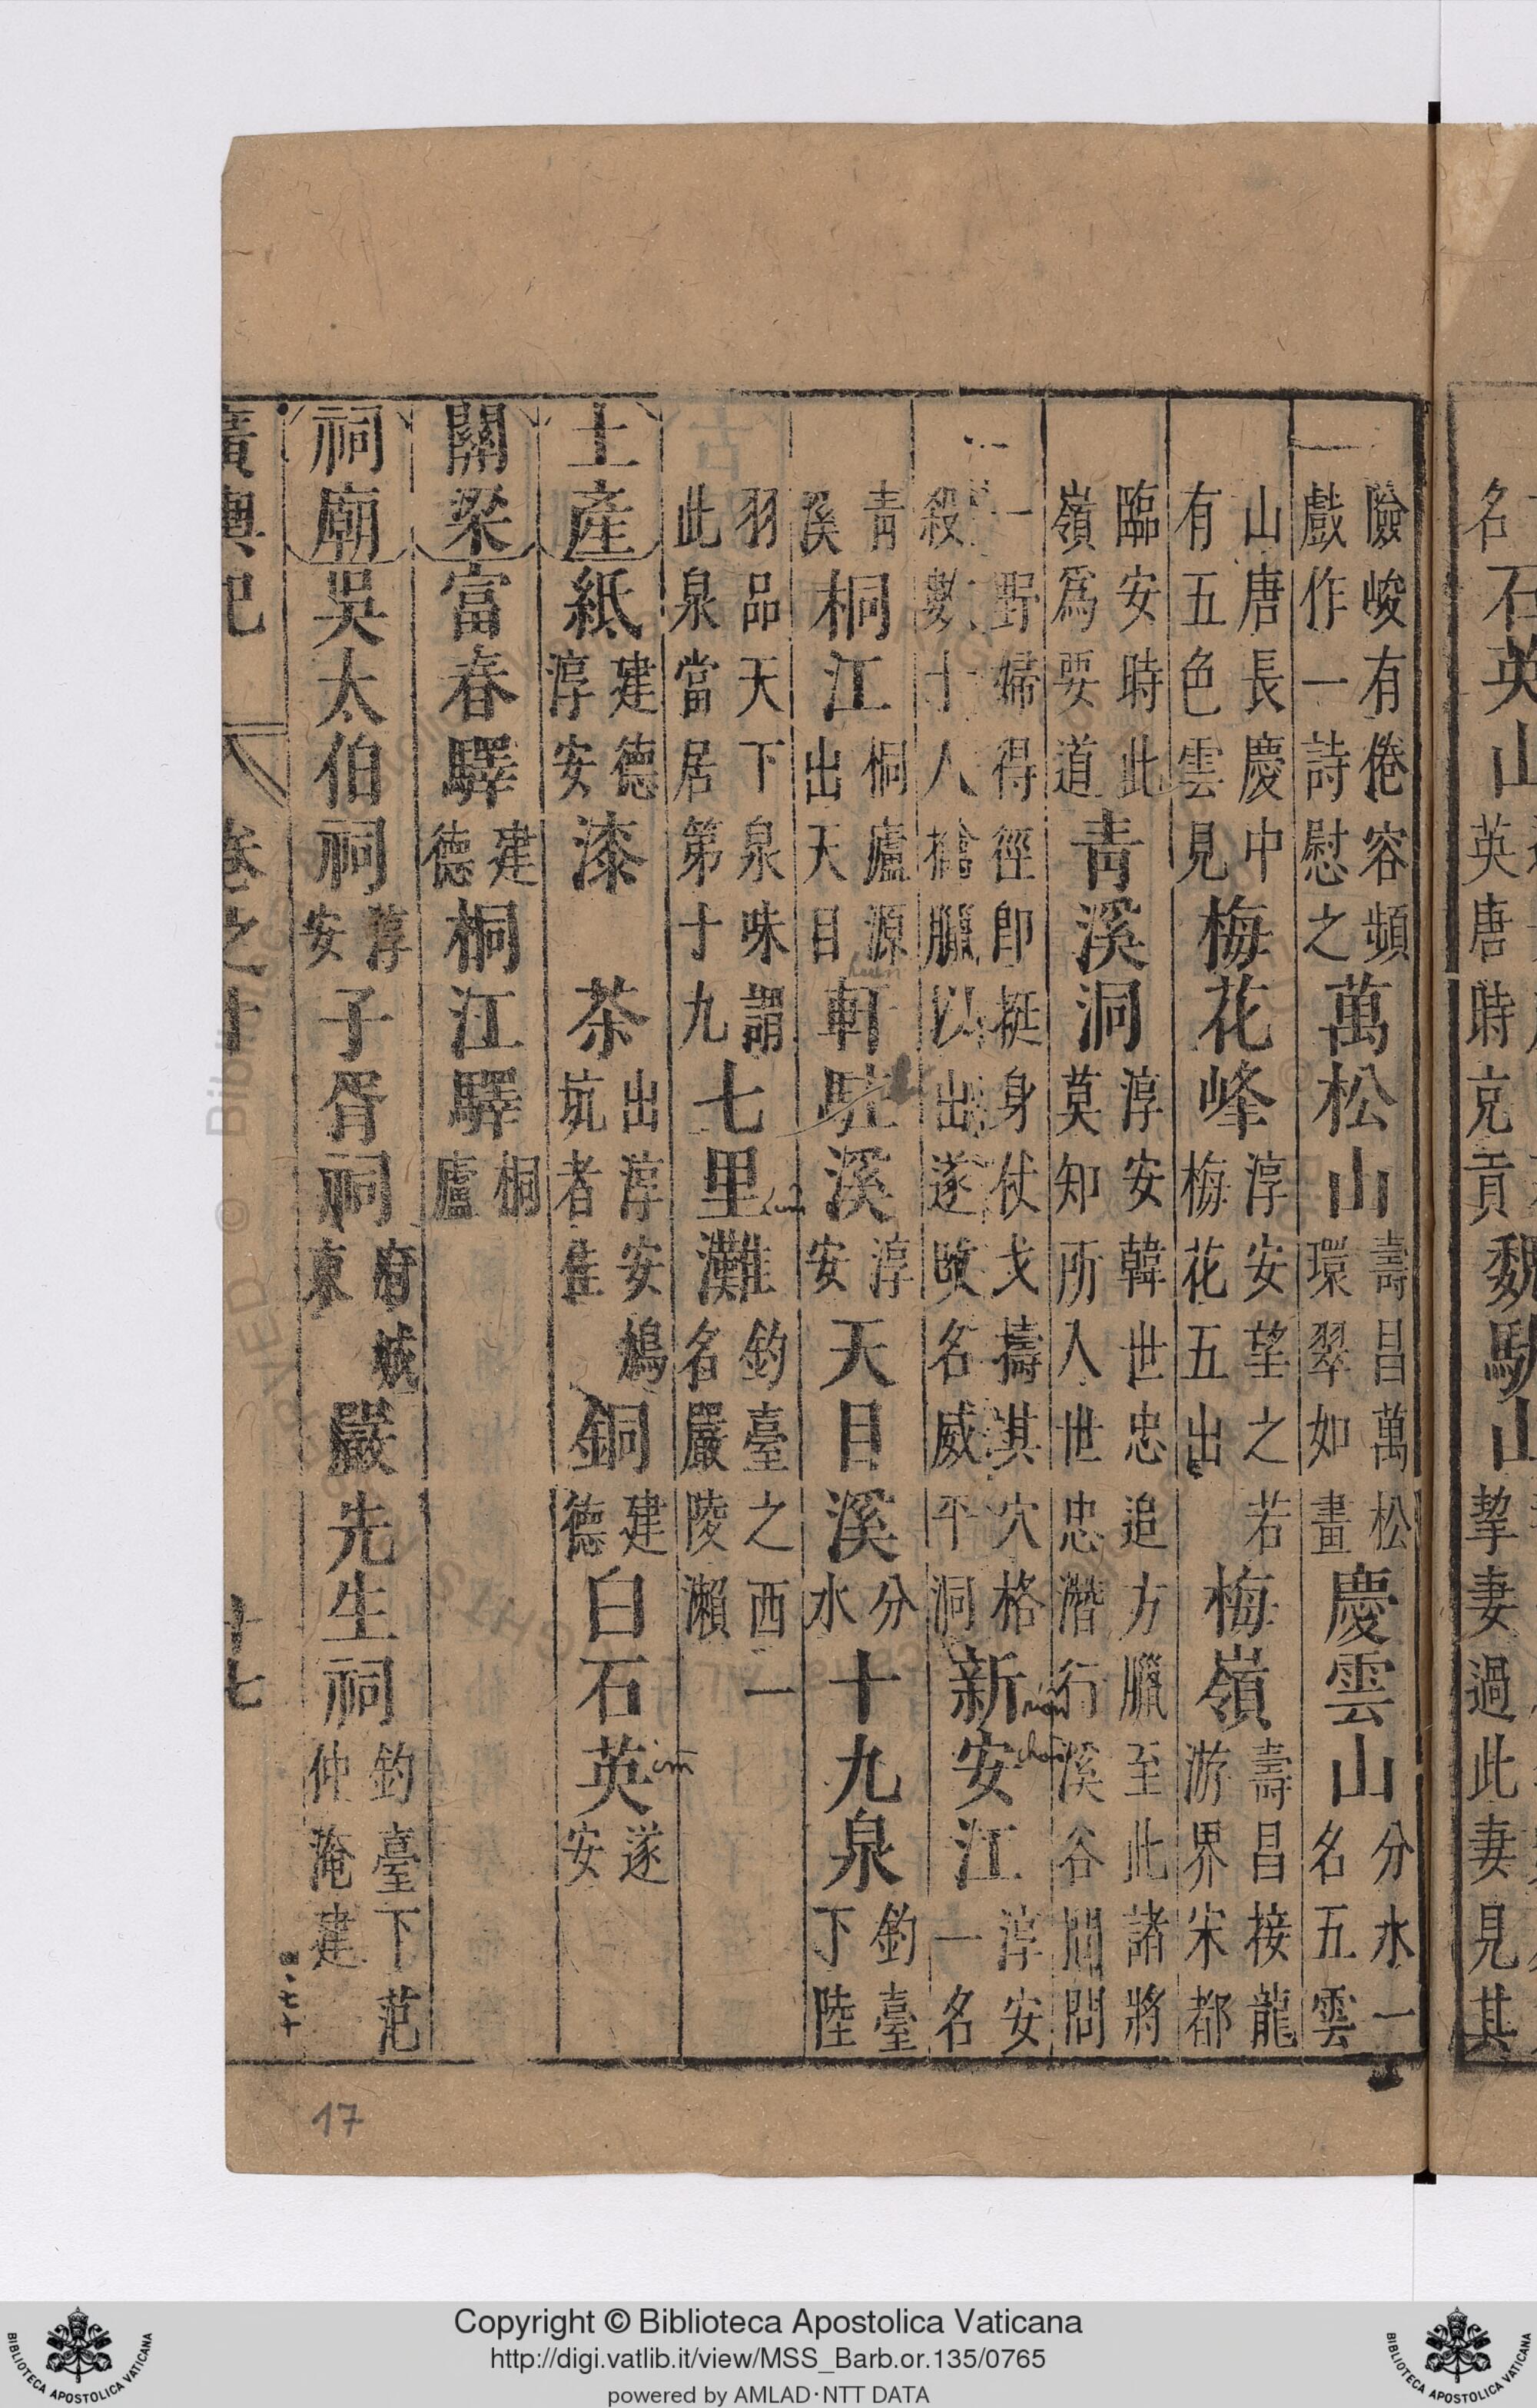 險峻有倦容頻
戲作一詩慰之
萬松山
壽昌萬松
環翠如畫
慶雲山
分水一
名五雲
山唐長慶中
有五色雲見
梅花峰
淳安望之若
梅花五出
梅嶺
壽昌接龍
游界宋都
臨安時此
嶺爲要道
青溪洞
淳安韓世忠追方臘至此諸將
莫知所入世忠潛行溪谷問
一野婦得徑卽挺身仗戈擣其穴格
殺數十人擒臘以出遂改名威平洞
新安江
淳安
一名
青
溪
桐江
桐廬源
出天目
軒駐溪
淳
安
天目溪
分
水
十九泉
釣臺
下陸
羽品天下泉味謂
此泉當居第十九
七里灘
釣臺之西一
名嚴陵瀨
土產
紙
建德
淳安
漆
茶
出淳安鳩
坑者佳
銅
建
德
白石英
遂
安
關梁
富春驛
建
德
桐江驛
桐
廬
祠廟
吳太伯祠
淳
安
子胥祠
府城
東
嚴先生祠
釣臺下范
仲淹建
廣輿記
卷之十
十七
17
名
石英山
英唐時
貢
魏駙山
妻過此妻見其
Copyright © Biblioteca Apostolica Vaticana
http://digi.vatlib.it/view/MSS_Barb.or.135/0765
powered by AMLAD·NTT DATA
BIBLIOTECA APOSTOLICA VATICANA
BIBLIOTECA APOSTOLICA VATICANA